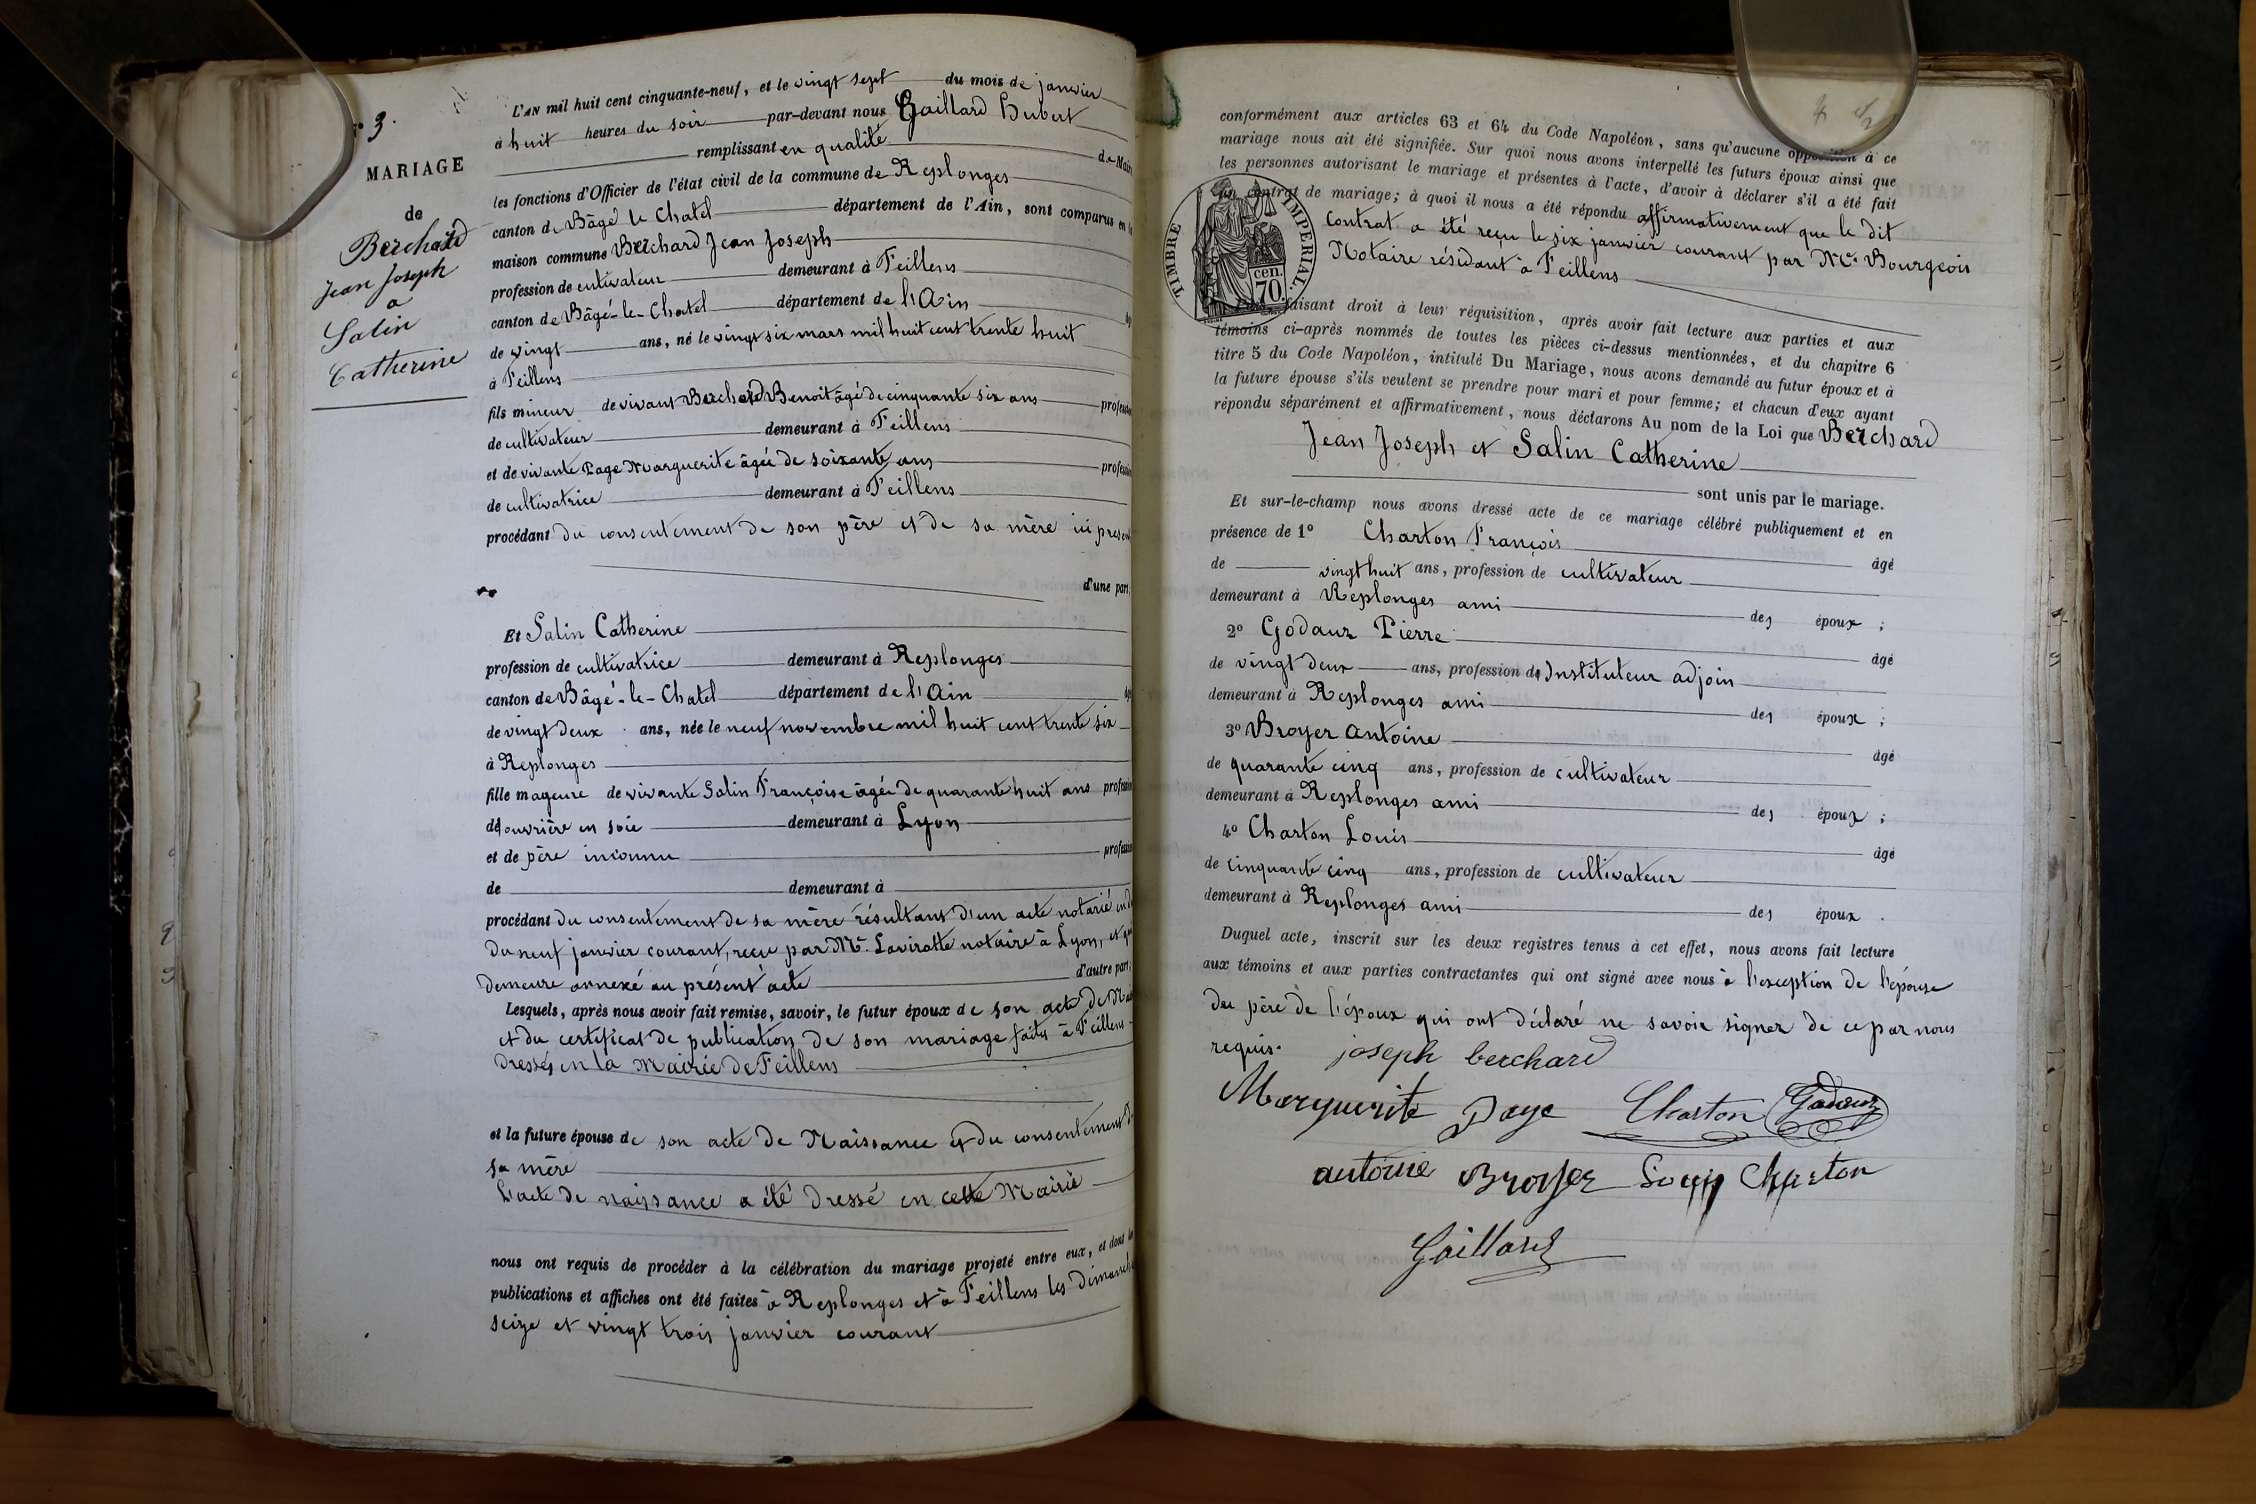 N° 3.
MARIAGE
de
Berchard
Jean Joseph
a
Salin
Catherine
L'AN mil huit cent cinquante-neuf, et le vingt sept du mois de janvier
à huit heures du soir par-devant nous Gaillard Hubert
remplissant en qualité de Maire
les fonctions d'Officier de l'état civil de la commune de Replonges
canton de Bâgé le Chatel département de l'Ain, sont comparus en la
maison commune Berchard Jean Joseph
profession de cultivateur demeurant à Feillens
canton de Bâgé-le-Chatel département de l'Ain
de vingt ans, né le vingt six mars mil huit cent trente huit
à Feillens
fils mineur de vivant Berchard Benoit âgé de cinquante six ans profession
de cultivateur demeurant à Feillens
et de vivante Page Marguerite âgée de soixante ans profession
de cultivatrice demeurant à Feillens
procédant du consentement de son père et de sa mère ici présent
d'une part,
Et Salin Catherine
profession de cultivatrice demeurant à Replonges
canton de Bâgé-le-Chatel département de l'Ain
de vingt deux ans, née le neuf novembre mil huit cent trente six
à Replonges
fille mageure de vivante Salin Françoise âgée de quarante huit ans profession
d'ouvrière en soie demeurant à Lyon
et de père inconnu profession
de demeurant à
procédant du consentement de sa mère résultant d'un acte notarié en
du neuf janvier courant, reçu par Me. Laviratte notaire à Lyon, et qui
demeure annexé au présent acte d'autre part,
Lesquels, après nous avoir fait remise, savoir, le futur époux de son acte de
et du certificat de publication de son mariage faites à Feillens
dressés en la Mairie de Feillens
et la future épouse de son acte de Naissance et du consentement de
sa mère
L'acte de naissance a été dressé en cette Mairie
nous ont requis de procéder à la célébration du mariage projeté entre eux, et dont les
publications et affiches ont été faites à Replonges et à Feillens les dimanches
seize et vingt trois janvier courant
conformément aux articles 63 et 64 du Code Napoléon, sans qu'aucune opposition à ce
mariage nous ait été signifiée. Sur quoi nous avons interpellé les futurs époux ainsi que
les personnes autorisant le mariage et présentes à l'acte, d'avoir à déclarer s'il a été fait
un contrat de mariage; à quoi il nous a été répondu affirmativement que le dit
contrat a été reçu le six janvier courant par Me. Bourgeois
Notaire résidant à Feillens
TIMBRE IMPERIAL.
cen.
70.
faisant droit à leur réquisition, après avoir fait lecture aux parties et aux
témoins ci-après nommés de toutes les pièces ci-dessus mentionnées, et du chapitre 6
titre 5 du Code Napoléon, intitulé Du Mariage, nous avons demandé au futur époux et à
la future épouse s'ils veulent se prendre pour mari et pour femme; et chacun d'eux ayant
répondu séparément et affirmativement, nous déclarons Au nom de la Loi que Berchard
Jean Joseph et Salin Catherine
sont unis par le mariage.
Et sur-le-champ nous avons dressé acte de ce mariage célébré publiquement et en
présence de 1° Charton François âgé
de vingt huit ans, profession de cultivateur
demeurant à Replonges ami des époux ;
2° Godaux Pierre âgé
de vingt deux ans, profession d'Instituteur adjoin
demeurant à Replonges ami des époux ;
3° Broyer Antoine âgé
de quarante cinq ans, profession de cultivateur
demeurant à Replonges ami des époux ;
4° Charton Louis âgé
de cinquante cinq ans, profession de cultivateur
demeurant à Replonges ami des époux .
Duquel acte, inscrit sur les deux registres tenus à cet effet, nous avons fait lecture
aux témoins et aux parties contractantes qui ont signé avec nous à l'exception de l'épouse
du père de l'époux qui ont déclaré ne savoir signer de ce par nous
requis.
joseph berchard
Marguerite Page Charton Godaux
antoine Broyer Louis Charton
Gaillard